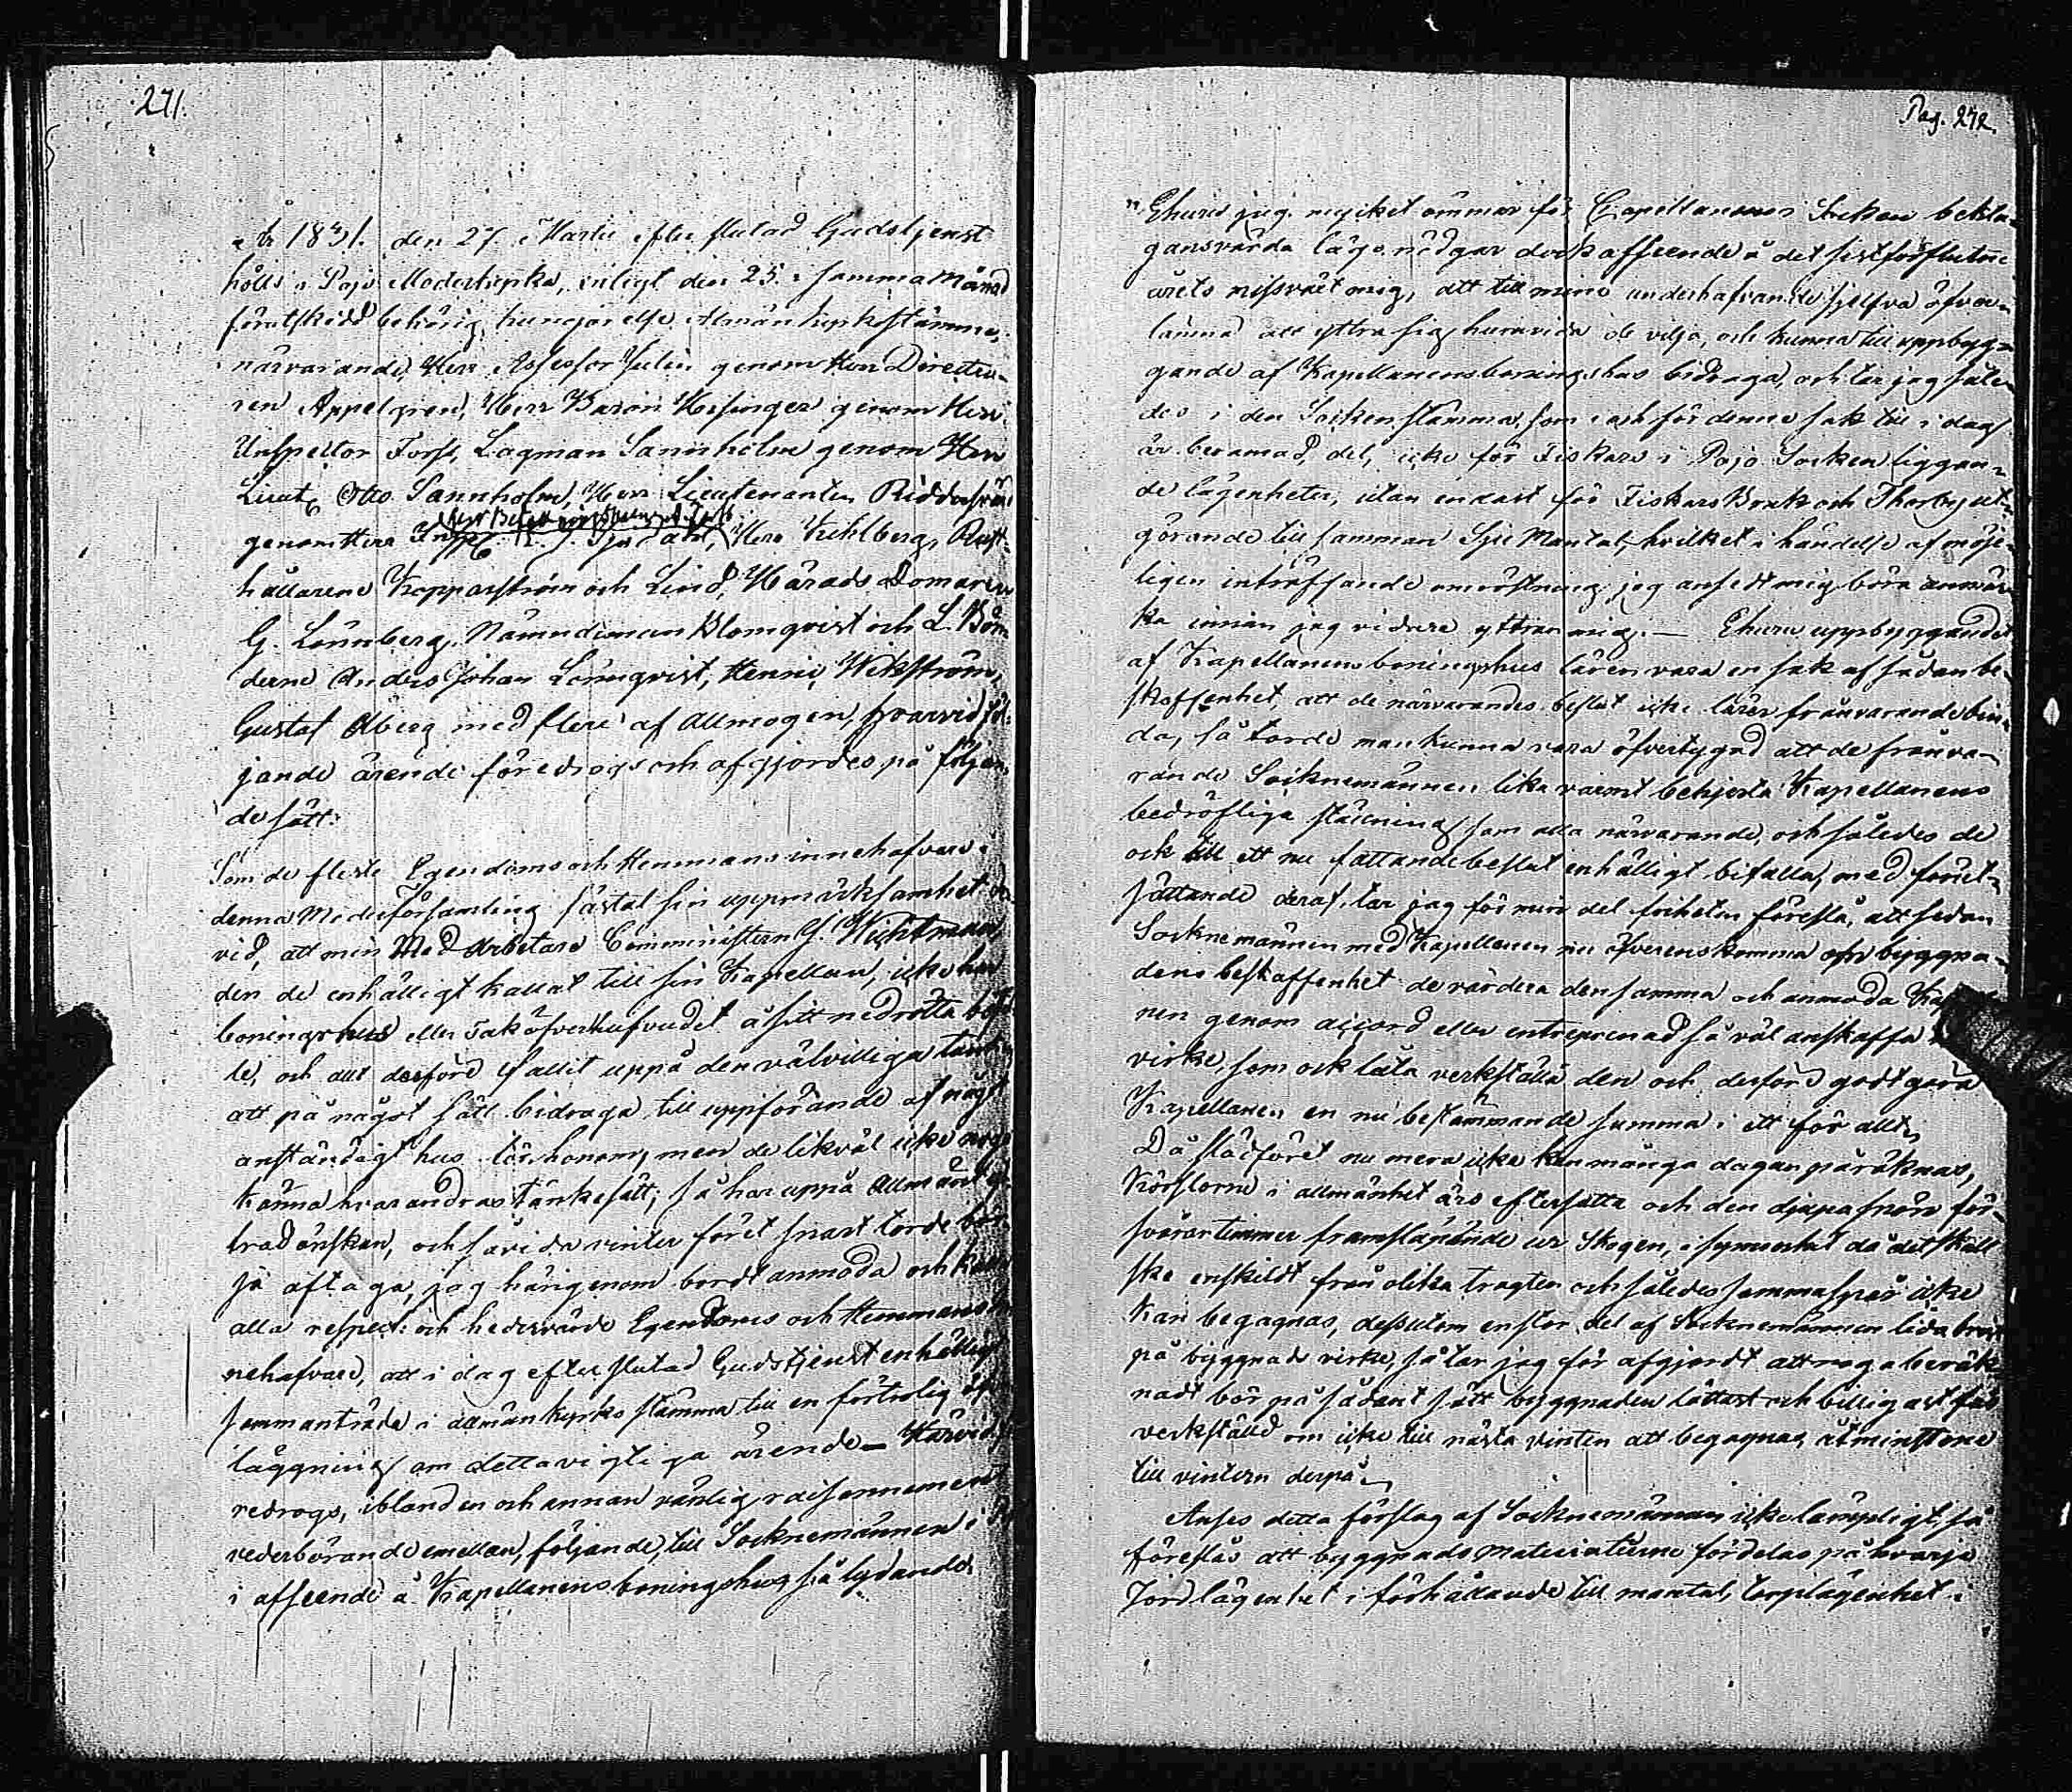 271.
År 1831. den 27. Martii efter slutad Gudstjenst
hölls i Pojo Moderkyrka, enligt den 25. i samma Månad
förutskedd behörig kungörelse Allmän Kyrkostämma,
närvarande, Herr Assessor Julin genom Herr Directeu-
ren Appelgren, Herr Baron Hisinger genom Herr
Inspector Forss, Lagman Sannholm genom Herr
Lieut. Otto Sannholm, Herr Lieutenanten Riddersvärd
genom Herr Insp. Herr Kihlberg, Rust-
hållarene Kopparström och Lind, Härads Domaren
G. Lönnberg, Nämndeman Blomqvist och L. Bön-
derne Anders Johan Lönnqvist, Henric Wikström,
Gustaf Åberg med flere af Allmogen, hvarvid föl-
jande ärende föredrogs och afgjordes på följan-
de sätt:
Som de fleste Egendoms och Hemmans innehafvare i
denna Moderförsamling fästat sin uppmärksamhet der-
vid, att min Med Arbetare Comministern G. Wichtman
den de enhälligt kallat till sin Kapellan, icke har
boningshus eller Tak öfver hufvudet å sitt nedrötta bost-
le, och allt derföre fallit uppå den välvilliga tank
att på något sätt bidraga till uppförande af något
anständigt hus för honom, men de likväl icke noga
känna hvarandras tänkesätt; så har uppå Allmänt yt-
trad önskan, och såvida vinterföret snart torde bör-
ja aftaga, jag härigenom bordt anmoda och kalla
alla respect. och hedervärde Egendoms och Hemmans in-
nehafvare, att i dag efter slutad Gudstjenst enhälligt
sammanträda i allmän kyrkostämma till en förtrolig öfver-
läggning om detta vigtiga ärende. — Härvid fö-
redrogs, ibland en och annan vänlig raisonnement
vederbörande emellan, följande, till Socknemännen i dag
i afseende å Kapellanens boningshus så lydande
Pag. 272.
"Ehuru jag mycket ömmar för Capellanens Siukan bekla-
gansvärda läge nödgar dock afseende å det sistförflutne
årets missväxt mig, att till mine underhafvande sjelfva öfver-
lämna att yttra sig huruvida de vilja, och kunna till uppbyg-
gande af Kapellanens boningshus bidraga, och tar jag såle-
des i den Sockenstämma, som ock för denna sak till i dag
är beramad, del, icke för Fiskars i Pojo Socken liggan-
de lägenheter, utan endast för Fiskars Bruk och Thorby ut-
görande tillsamman Sju Mantal, hvilket i händelse af möje-
ligen inträffande omröstning jag ansedt mig böra anmär-
ka innan jag vidare yttrar mig. — Ehuru uppbyggandet
af Kapellanens boningshus lärer vara en sak af sådan be-
skaffenhet, att de närvarandes beslut icke lärer frånvarande bin-
da, så torde man kunna vara öfvertygad att de frånva-
rande Socknemännen lika varmt behjerta Kapellanens
bedröfliga ställning som alla närvarande, och således de
ock till ett nu fattande beslut enhälligt bifalla, med förut-
sättande deraf, tar jag för min del friheten föreslå, att sedan
Socknemännen med Kapellanen nu öfverenskomma om byggna-
dens beskaffenhet de värdera densamma och anmoda
nen genom accord eller entreprenad så väl anskaffa
virke, som ock låta verkställa den och derföre godtgöra
Kapellanen en nu bestämmande summa i ett för allt,
Då slädföret nu mera icke kan många dagar påräknas,
Körslorne i allmänhet äro eftersatta och den djupa snön för-
svårar timmer framsläpande ur Skogen, i synnerhet då det skall
ske enskildt från olika tragter och således samma spår icke
kan begagnas, dessutom en stor del af Socknemännen lida brist
på byggnads virke, så tar jag för afgjordt att noga beräk-
nadt bör på sådant sätt byggnaden lättast och billigast fås
verkställd om icke till nästa vinter att begagnas, åtminstone
till vintern derpå.
Anses detta förslag af Socknemännen icke lämpligt, så
föreslås att byggnads materialierne fördelas på hvarje
Jordlägenhet i förhållande till mantal, torplägenhet i